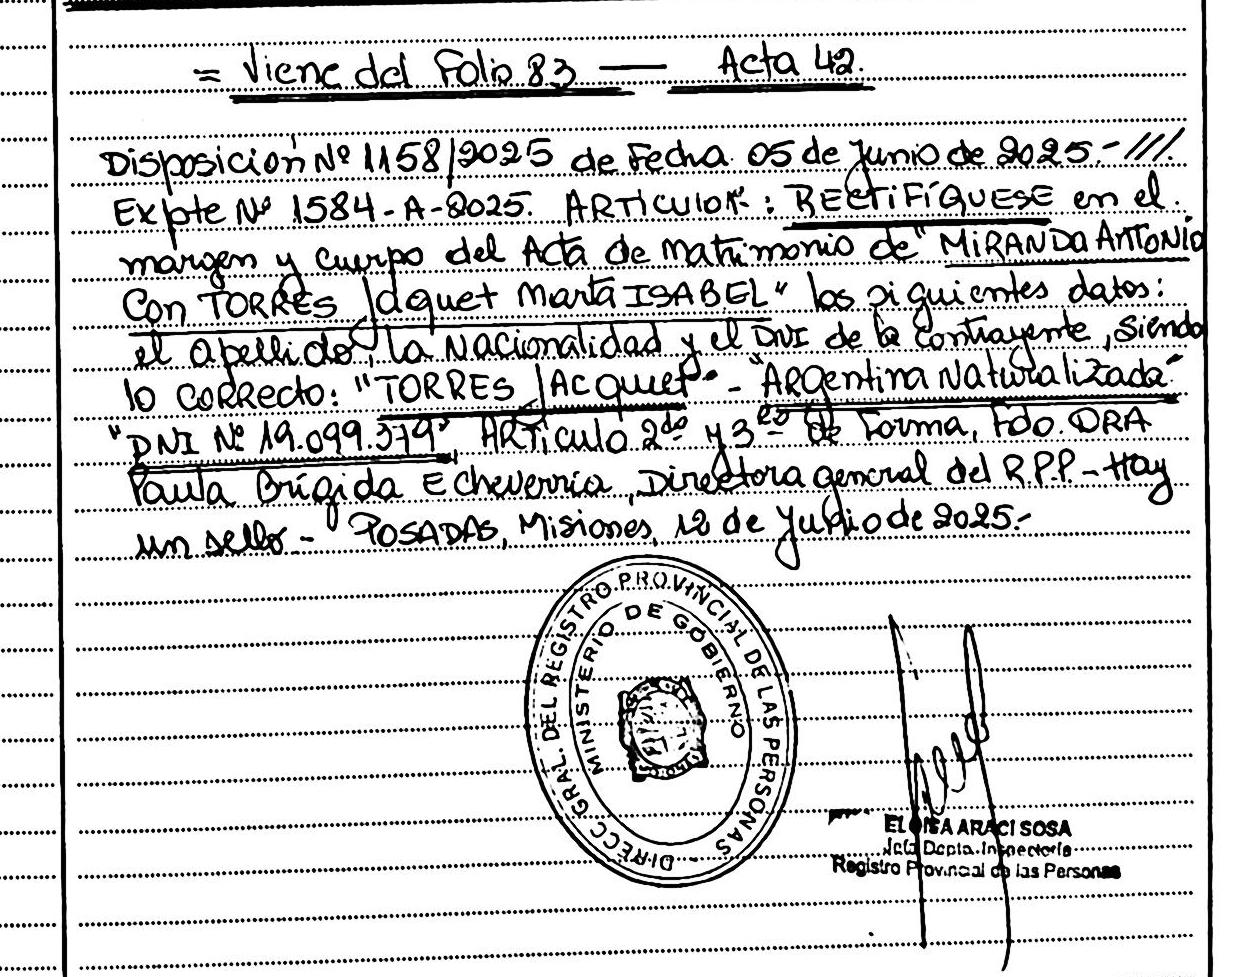 = Viene del Folio 83 — Acta 42.
Disposición Nº 1158/2025 de Fecha 05 de Junio de 2025.- ///.
Expte Nº 1584-A-2025. ARTICULO 1º: RECTIFÍQUESE en el
margen y cuerpo del Acta de Matrimonio de "MIRANDA ANTONIO
Con TORRES Jaquet Marta ISABEL" los siguientes datos:
el apellido, la Nacionalidad y el DNI de la Contrayente, siendo
lo CORRecto: "TORRES JAcquet" - "ARgentina Naturalizada"
"DNI Nº 19.099.579" ARTículo 2do y 3º de Forma, Fdo. DRA
Paula Brígida Echeverría, Directora general del R.P.P. - Hay
un sello. - POSADAS, Misiones, 12 de Junio de 2025.-
DIRECC. GRAL. DEL REGISTRO PROVINCIAL DE LAS PERSONAS -
MINISTERIO DE GOBIERNO
ELOISA ARACI SOSA
Jefa Depto. Inspectoría
Registro Provincial de las Personas